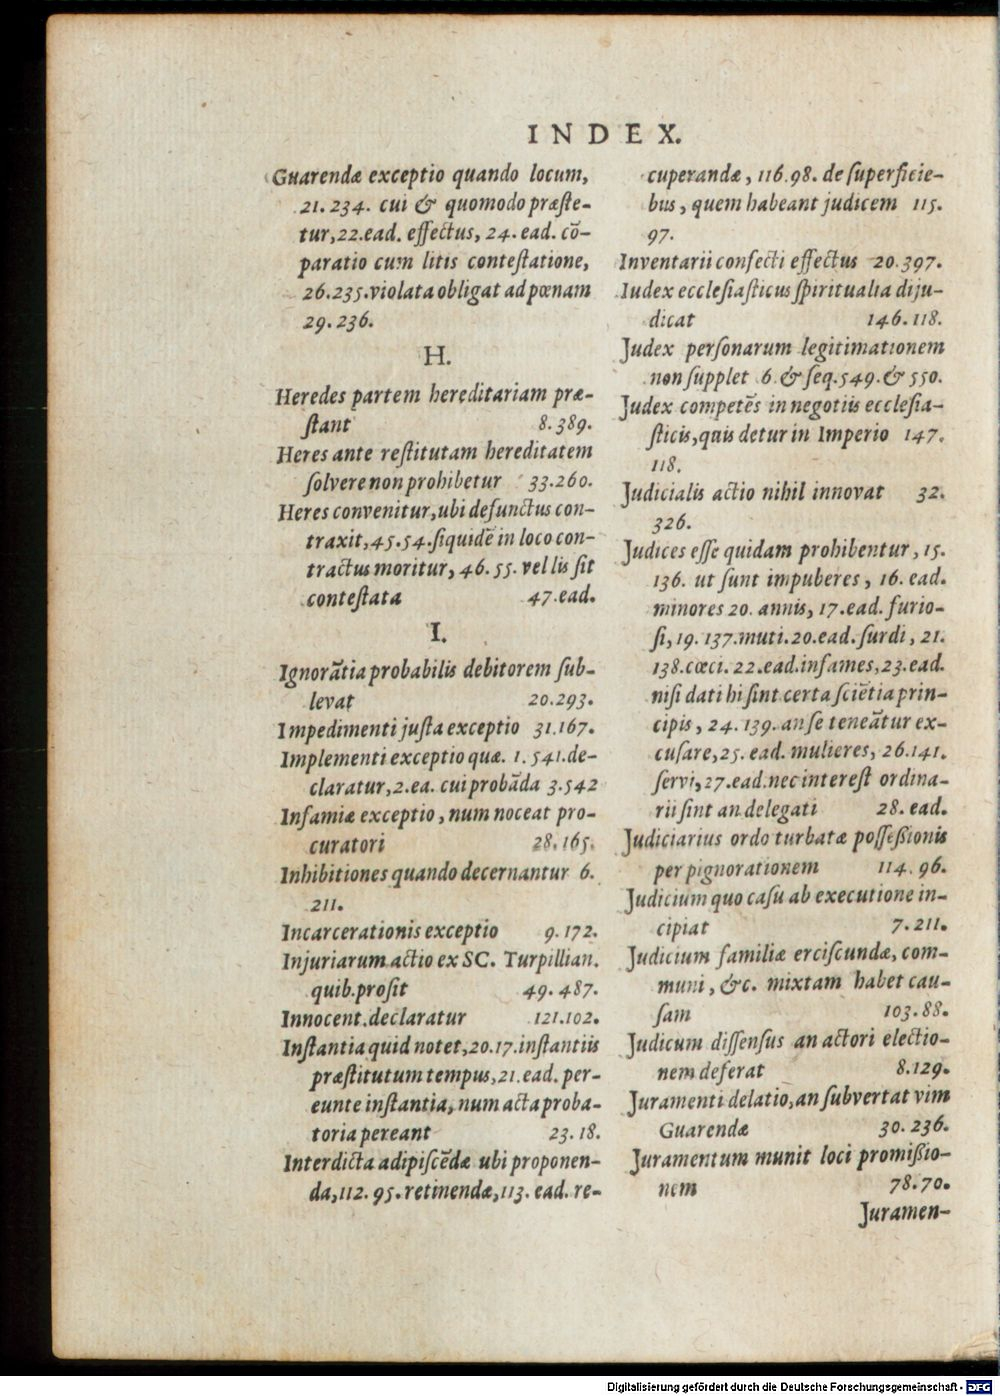 INDEX.
Guarendæ exceptio quando locum,
21. 234. cui & quomodo præſte-
tur,22.ead. effectus, 24. ead. cō-
paratio cum litis conteſtatione,
26.235.violata obligat ad pœnam
29. 236.
H.
Heredes partem hereditariam præ-
ſtant 8. 389.
Heres ante reſtitutam hereditatem
ſolvere non prohibetur 33.260.
Heres convenitur,ubi defunctus con-
traxit,45.54.ſiquidē in loco con-
tractus moritur, 46. 55. vel lis ſit
conteſtata 47.ead.
I.
Ignorātia probabilis debitorem ſub-
levat 20.293.
Impedimenti juſta exceptio 31.167.
Implementi exceptio quæ. 1. 541.de-
claratur,2.ea. cui probāda 3.542
Infamiæ exceptio, num noceat pro-
curatori 28.165.
Inhibitiones quando decernantur 6.
211.
Incarcerationis exceptio 9.172.
Injuriarum actio ex SC. Turpillian.
quib.proſit 49. 487.
Innocent.declaratur 121.102.
Inſtantia quid notet,20.17.inſtantiis
præſtitutum tempus,21.ead. per-
eunte inſtantia, num acta proba-
toria pereant 23. 18.
Interdicta adipiſcēdæ ubi proponen-
da,112. 95. retinendæ,113. ead. re-
cuperandæ, 116.98. de ſuperficie-
bus, quem habeant judicem 115.
97.
Inventarii confecti effectus 20.397.
Iudex eccleſiaſticus ſpiritualia diju-
dicat 146.118.
Judex perſonarum legitimationem
non ſupplet 6. & ſeq.549.& 550.
Judex competēs in negotiis eccleſia-
ſticis,quis detur in Imperio 147.
118.
Judicialis actio nihil innovat 32.
326.
Judices eſſe quidam prohibentur, 15.
136. ut ſunt impuberes, 16. ead.
minores 20. annis, 17.ead. furio-
ſi, 19. 137.muti.20.ead.ſurdi, 21.
138.cæci. 22.ead.infames,23.ead.
niſi dati hi ſint certa ſciētia prin-
cipis, 24. 139. an ſe teneātur ex-
cuſare,25. ead. mulieres, 26.141.
ſervi,27.ead.nec intereſt ordina-
rii ſint an delegati 28. ead.
Judiciarius ordo turbatæ poſſeßionis
per pignorationem 114. 96.
Judicium quo caſu ab executione in-
cipiat 7.211.
Judicium familiæ erciſcundæ, com-
muni, &c. mixtam habet cau-
ſam 103.88.
Judicum diſſenſus an actori electio-
nem deferat 8.129.
Juramenti delatio,an ſubvertat vim
Guarendæ 30. 236.
Juramentum munit loci promißio-
nem 78.70.
Juramen-
Digitalisierung gefördert durch die Deutsche Forschungsgemeinschaft - DFG